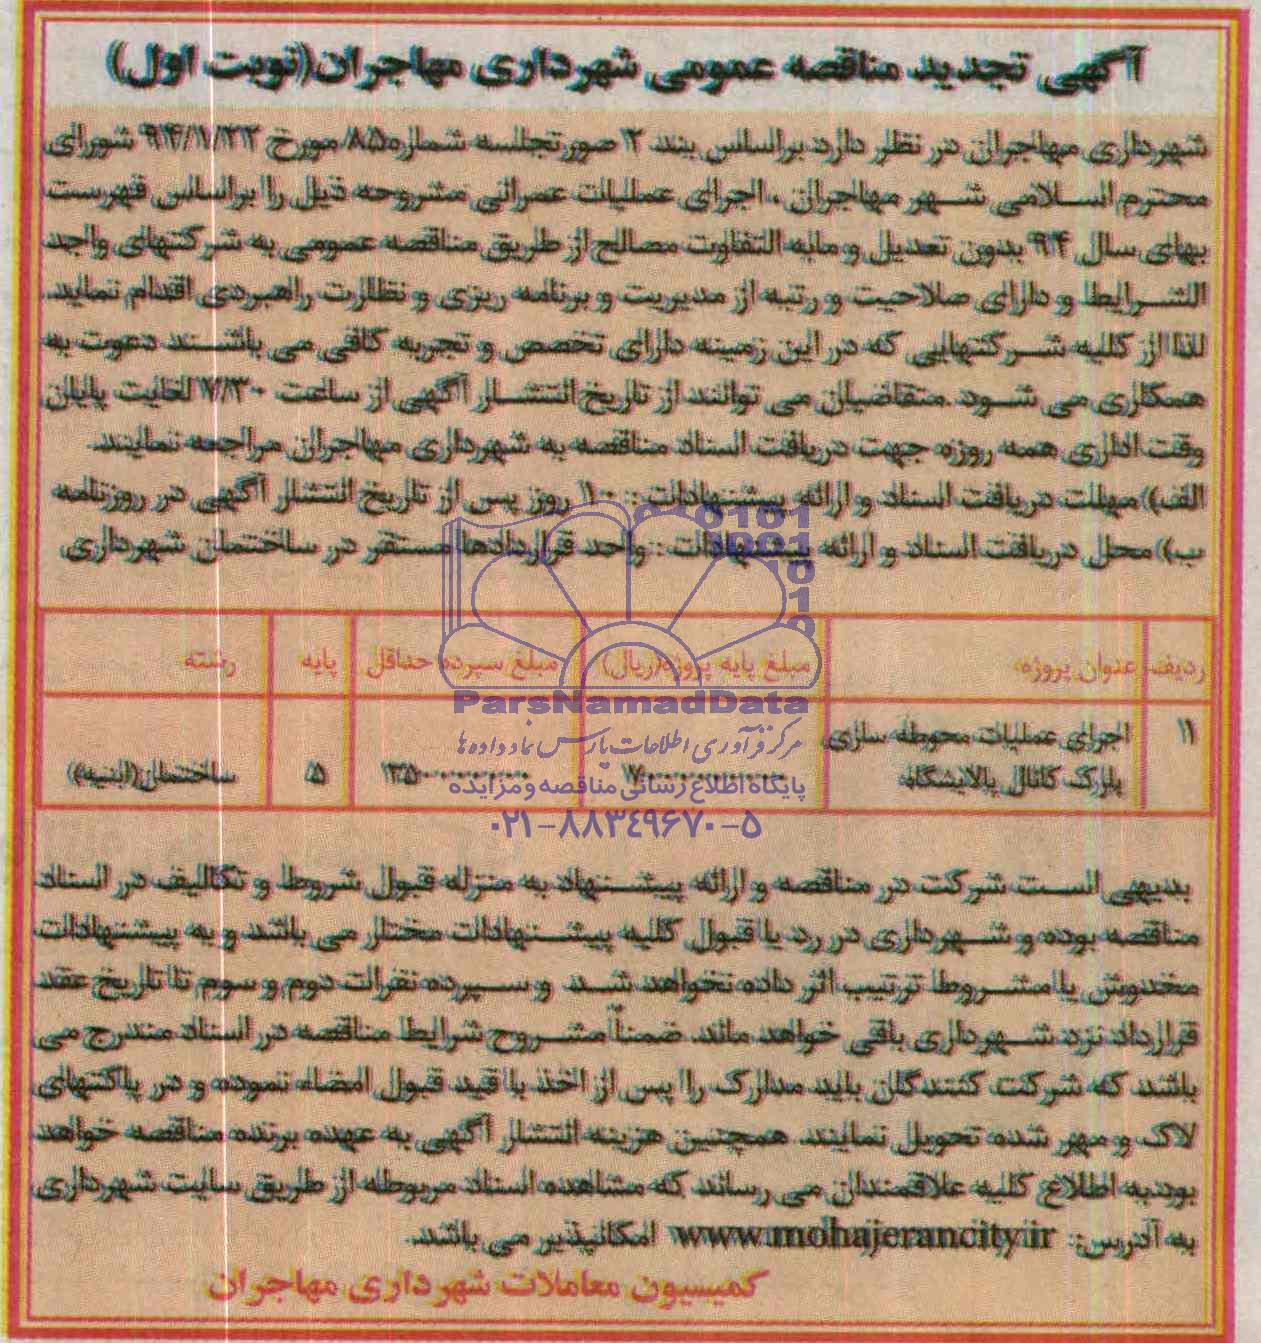 آگهی تجدید مناقصه عمومی شهرداری مهاجران(نوبت اول)
شهرداری مهاجران در نظر دارد براساس بند ۲ صورتجلسه شماره ۸۵ مورخ ۹۴/۱/۲۲ شورای
محترم اسلامی شهر مهاجران ، اجرای عملیات عمرانی مشروحه ذیل را براساس فهرست
بهای سال ۹۴ بدون تعدیل و مابه التفاوت مصالح از طریق مناقصه عمومی به شرکتهای واجد
الشرایط و دارای صلاحیت و رتبه از مدیریت و برنامه ریزی و نظارت راهبردی اقدام نماید.
لذا از کلیه شرکتهایی که در این زمینه دارای تخصص و تجربه کافی می باشند دعوت به
همکاری می شود .متقاضیان می توانند از تاریخ انتشار آگهی از ساعت ۷/۳۰ لغایت پایان
وقت اداری همه روزه جهت دریافت اسناد مناقصه به شهرداری مهاجران مراجعه نمایند.
الف) مهلت دریافت اسناد و ارائه پیشنهادات : ۱۰ روز پس از تاریخ انتشار آگهی در روزنامه
ب) محل دریافت اسناد و ارائه پیشنهادات : واحد قراردادها مستقر در ساختمان شهرداری
ردیف عنوان پروژه مبلغ پایه پروژه(ریال) مبلغ سپرده حداقل پایه رشته
۱ اجرای عملیات محوطه سازی
پارک کانال پالایشگاه ۵ ساختمان(ابنیه)
ParsNamadData
مرکز فرآوری اطلاعات پارس نماد داده ها
پایگاه اطلاع رسانی مناقصه و مزایده
۰۲۱-۸۸۳۴۹۶۷۰-۵
بدیهی است شرکت در مناقصه و ارائه پیشنهاد به منزله قبول شروط و تکالیف در اسناد
مناقصه بوده و شهرداری در رد یا قبول کلیه پیشنهادات مختار می باشد و به پیشنهادات
مخدوش یا مشروط ترتیب اثر داده نخواهد شد و سپرده نفرات دوم و سوم تا تاریخ عقد
قرارداد نزد شهرداری باقی خواهد ماند. ضمناً مشروح شرایط مناقصه در اسناد مندرج می
باشند که شرکت کنندگان باید مدارک را پس از اخذ با قید قبول امضاء نموده و در پاکتهای
لاک و مهر شده تحویل نمایند. همچنین هزینه انتشار آگهی به عهده برنده مناقصه خواهد
بود.به اطلاع کلیه علاقمندان می رساند که مشاهده اسناد مربوطه از طریق سایت شهرداری
به آدرس: www.mohajerancity.ir امکانپذیر می باشد.
کمیسیون معاملات شهرداری مهاجران